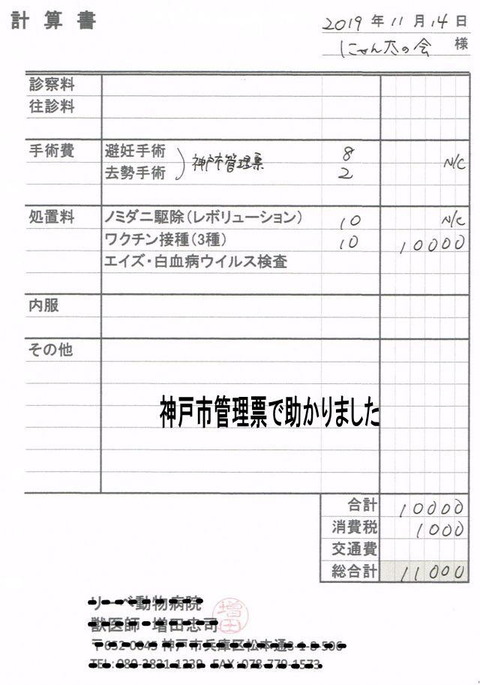 計算書
2019年11月14日
にゃん太の会 様
診察料
往診料
手術費 避妊手術 8 N/C
去勢手術 2
神戸市管理票
処置料 ノミダニ駆除(レボリューション) 10 N/C
ワクチン接種(3種) 10 10000
エイズ・白血病ウイルス検査
内服
その他
神戸市管理票で助かりました
合計 10000
消費税 1000
交通費
総合計 11000
リーベ動物病院
獣医師 増田忠司
増田
神戸市兵庫区松本通